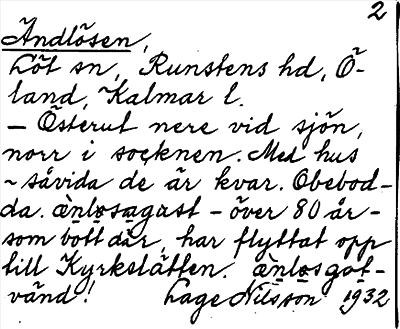 2
Ändlösen,
Löt sn, Runstens hd, Ö-
land, Kalmar l.
– Österut nere vid sjön,
norr i socknen. Med hus
~ såvida de är kvar. Obebod-
da. ànløsagast – över 80 år –
som bott där, har flyttat opp
till Kyrkslätten. ànløs gat-
vänd! Lage Nilsson 1932